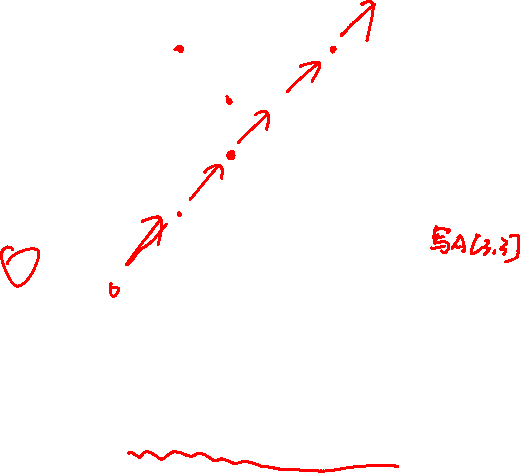 写A[3,3]